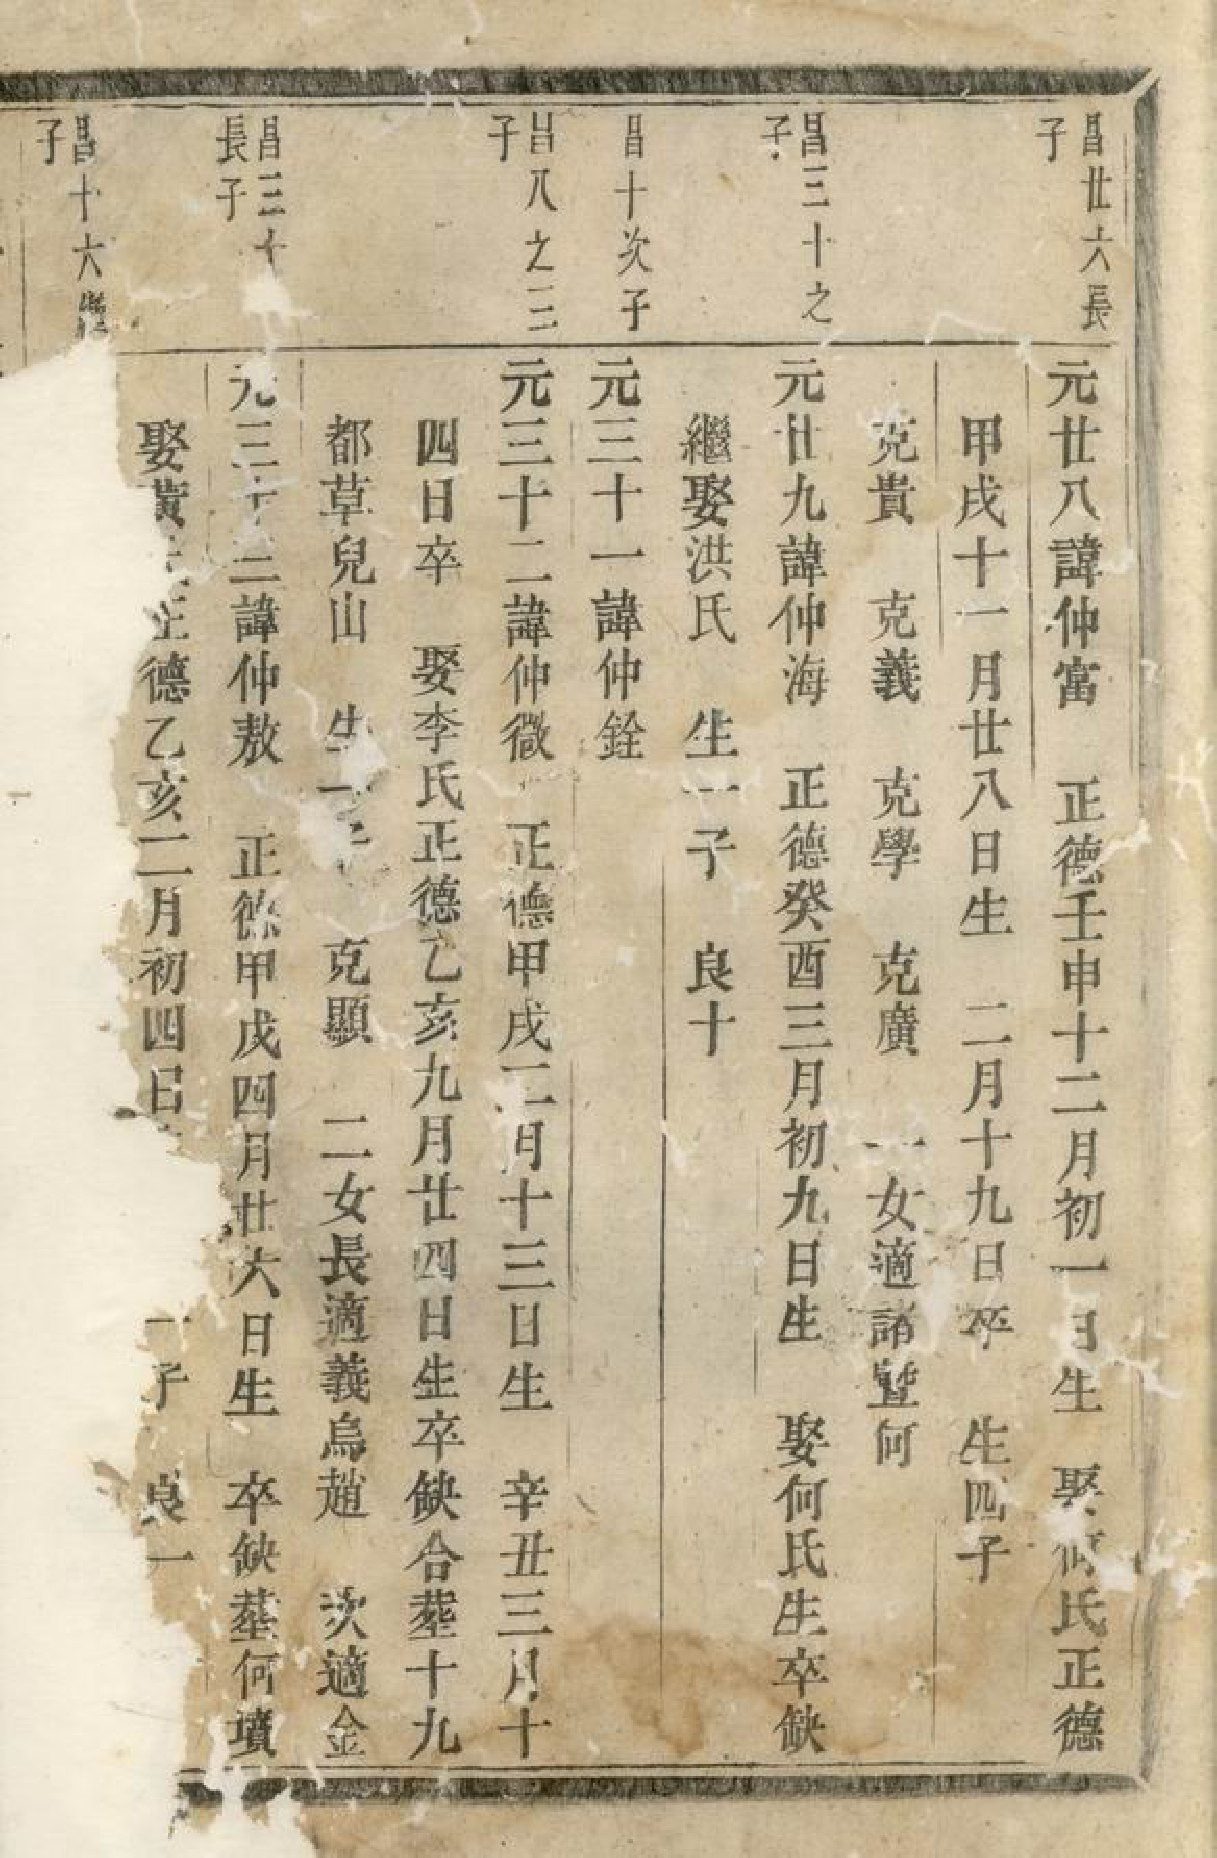 昌廿六長
子
元廿八諱仲富　正德壬申十二月初一日生　娶何氏正德
甲戌十一月廿八日生　二月十九日卒　生四子
克貴　克義　克學　克廣　一女適諸暨何
昌三十之
子
元廿九諱仲海　正德癸酉三月初九日生　娶何氏生卒缺
繼娶洪氏　生一子　良十
昌十次子
元三十一諱仲銓
昌八之三
子
元三十二諱仲徵　正德甲戌二月十三日生　辛丑三月十
四日卒　娶李氏正德乙亥九月廿四日生卒缺合塟十九
都草兒山　生一子　克顯　二女長適義烏趙　次適金
昌三十
長子
元三十三諱仲敖　正德甲戌四月廿六日生　卒缺塟何墳
昌十六繼
子
娶黃氏正德乙亥二月初四日
一子　良一